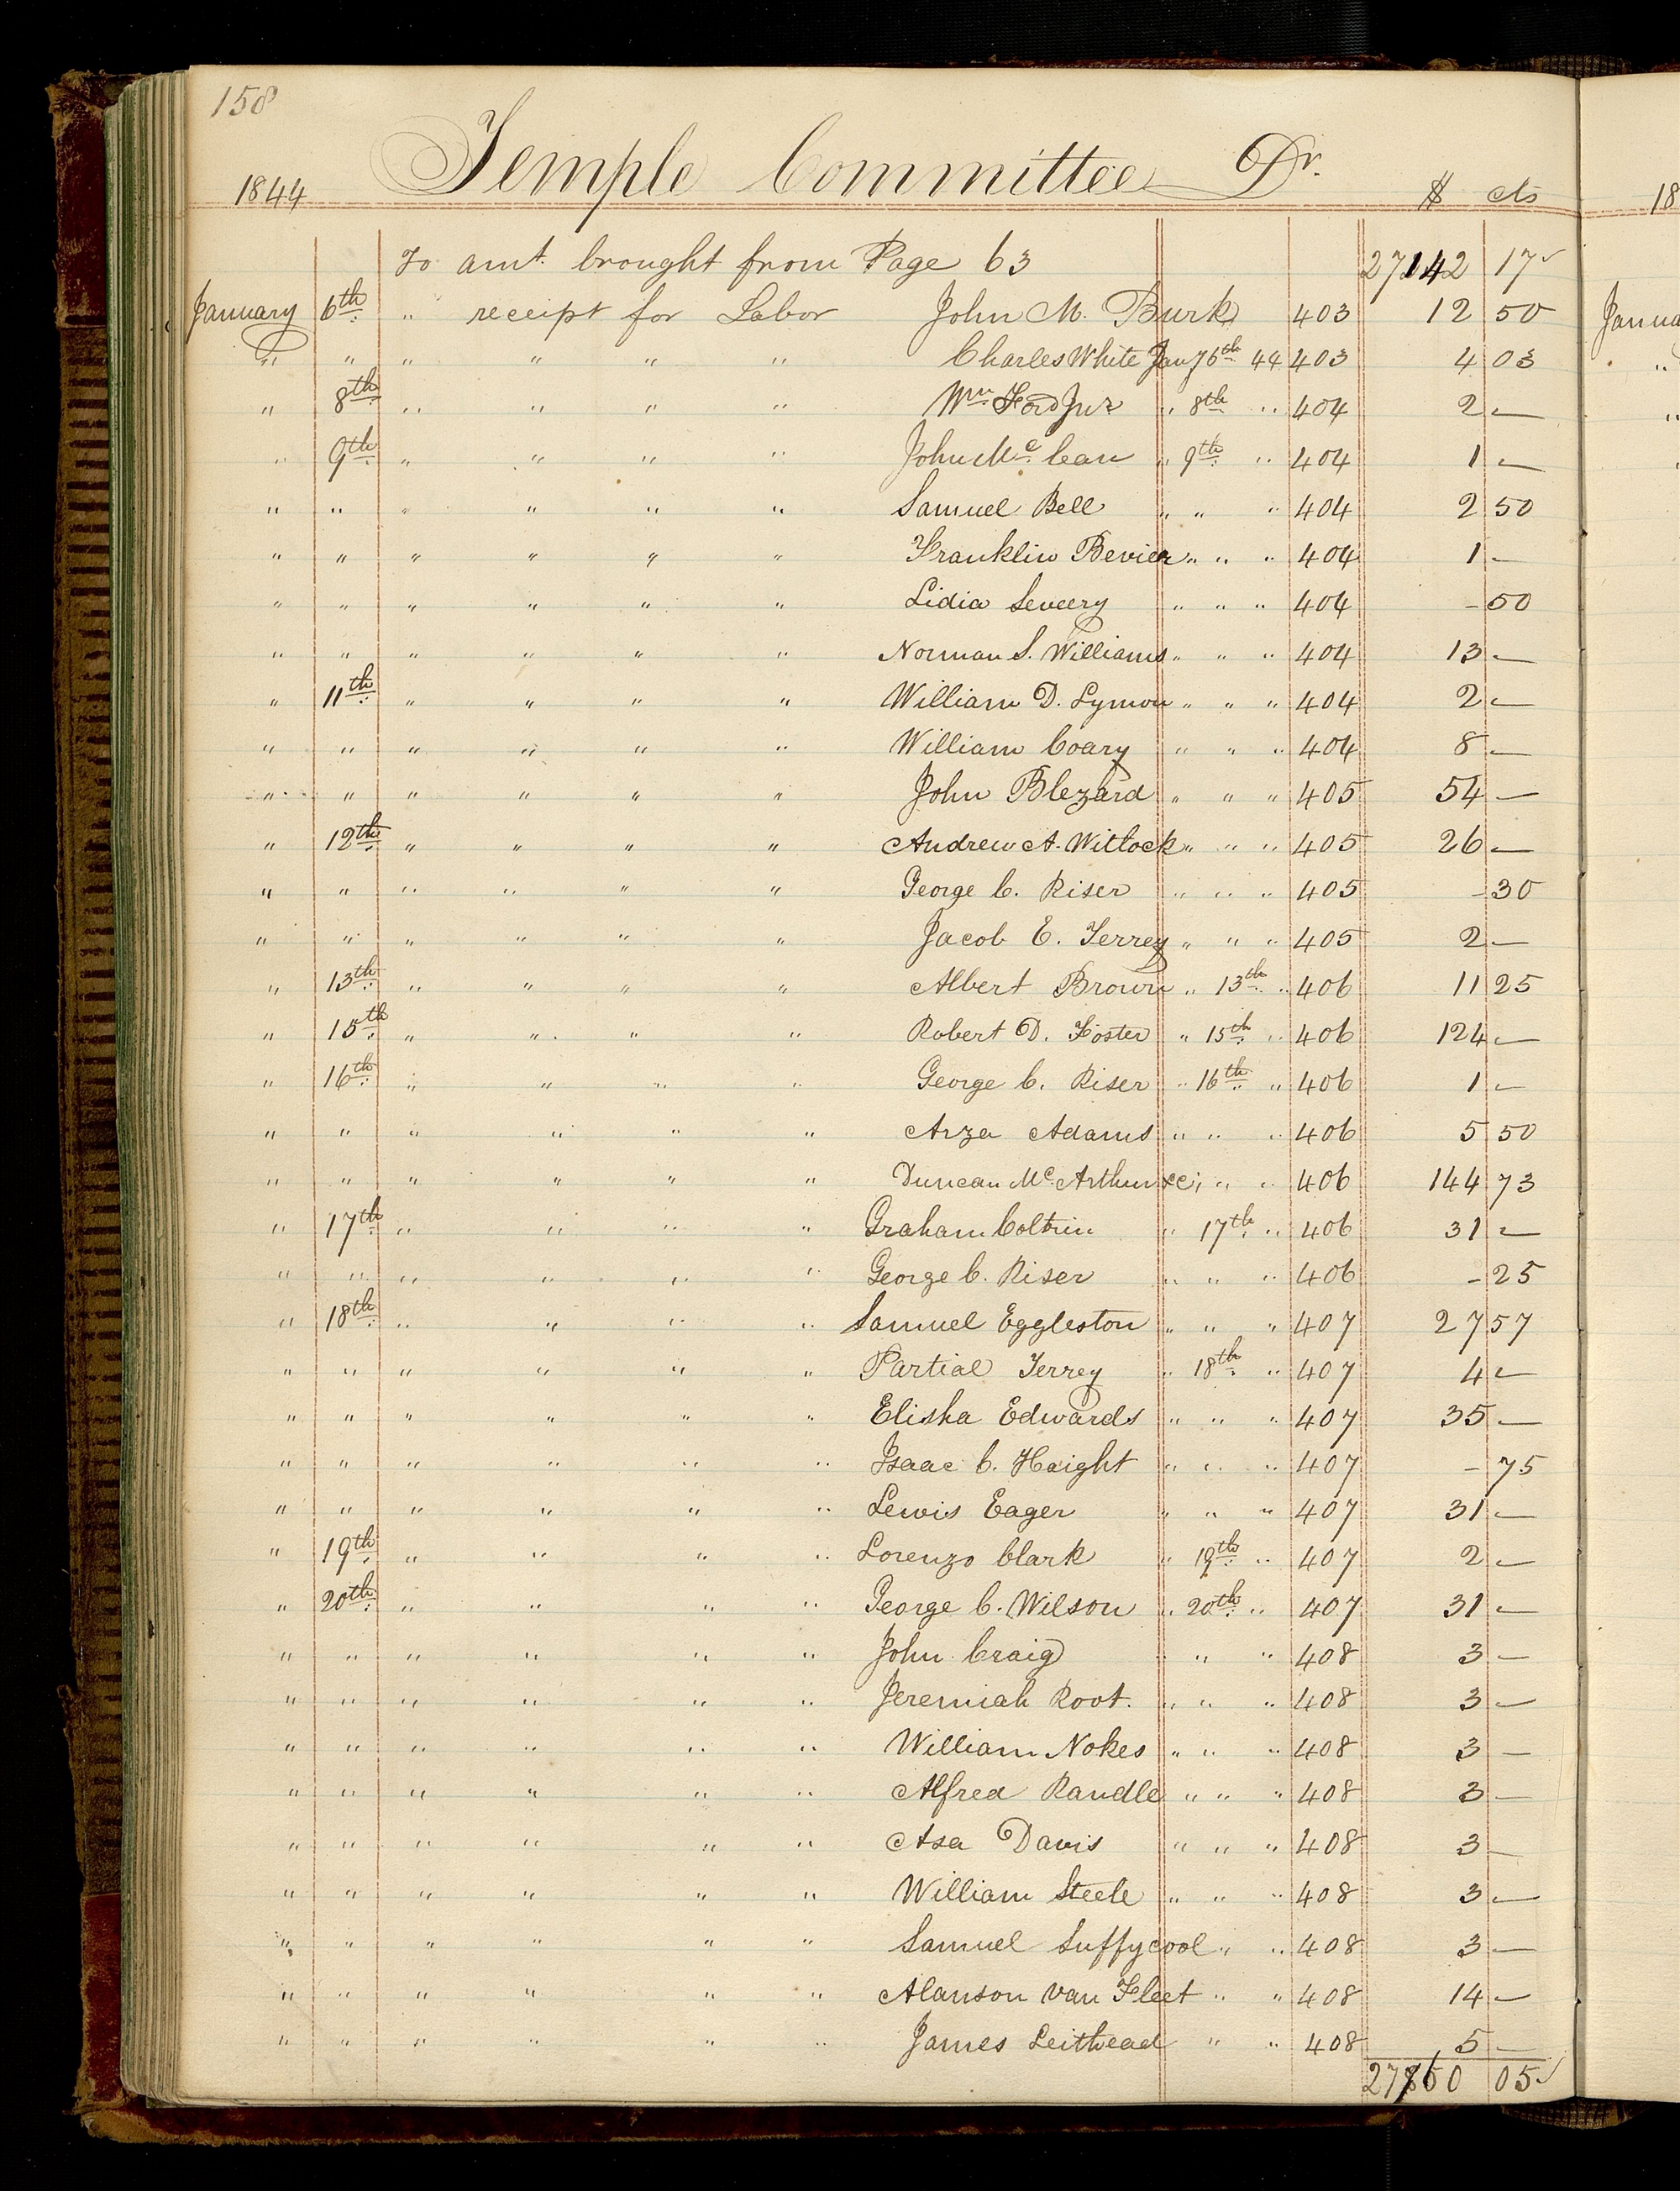 158
Temple Committee Dr.
1844 $ cts
To amt. brought from Page 63 27142 17
January 6th " receipt for Labor John M. Burk 403 12 50
" " " " " " Charles White Jany 6th 44 403 4 03
" 8th " " " " Wm Ford Jur " 8th " 404 2 —
" 9th " " " " John Mc. Cean " 9th " 404 1 —
" " " " " " Samuel Bell " " " 404 2 50
" " " " " " Franklin Bevier " " " 404 1 —
" " " " " " Lidia Seveery " " " 404 - 50
" " " " " " Norman S. Williams " " " 404 13 —
" 11th " " " " William D. Lymon " " " 404 2 —
" " " " " " William Coary " " " 404 8 —
" " " " " " John Blezard " " " 405 54 —
" 12th " " " " Andrew A. Witlock " " " 405 26 —
" " " " " " George C. Riser " " " 405 - 30
" " " " " " Jacob E. Terrey " " " 405 2 —
" 13th " " " " Albert Brown " 13th " 406 11 25
" 15th " " " " Robert D. Foster " 15th " 406 124 —
" 16th " " " " George C. Riser " 16th " 406 1 —
" " " " " " Arza Adams " " " 406 5 50
" " " " " " Duncan Mc. Arthur &c " " " 406 144 73
" 17th " " " " Graham Coltrin " 17th " 406 31 —
" " " " " " George C. Riser " " " 406 - 25
" 18th " " " " Samuel Eggleston " " " 407 27 57
" " " " " " Partial Terrey " 18th " 407 4 —
" " " " " " Elisha Edwards " " " 407 35 —
" " " " " " Isaac C. Haight " " " 407 - 75
" " " " " " Lewis Eager " " " 407 31 —
" 19th " " " " Lorenzo Clark " 19th " 407 2 —
" 20th " " " " George C. Wilson " 20th " 407 31 —
" " " " " " John Craig " " " 408 3 —
" " " " " " Jeremiah Root. " " " 408 3 —
" " " " " " William Nokes " " " 408 3 —
" " " " " " Alfred Randle " " " 408 3 —
" " " " " " Asa Davis " " " 408 3 —
" " " " " " William Steele " " " 408 3 —
" " " " " " Samuel Suffycool " " 408 3 —
" " " " " " Alanson Van Fleet " " 408 14 —
" " " " " " James Leithead " " 408 5 —
27760 05
18
Janua